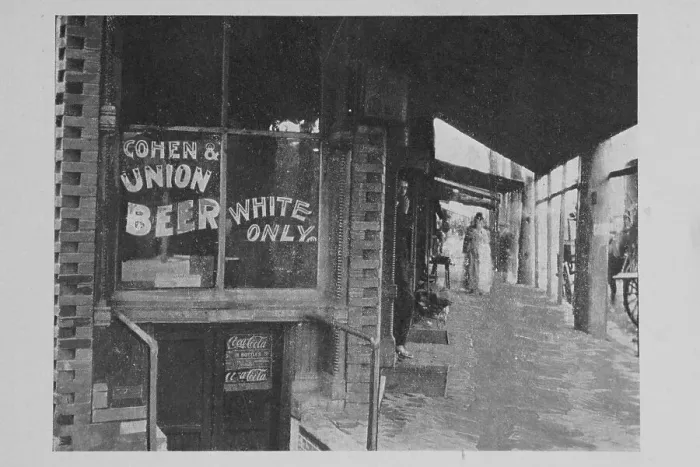 COHEN &
UNION
BEER
WHITE
ONLY.
Coca-Cola
IN BOTTLES
Coca-Cola